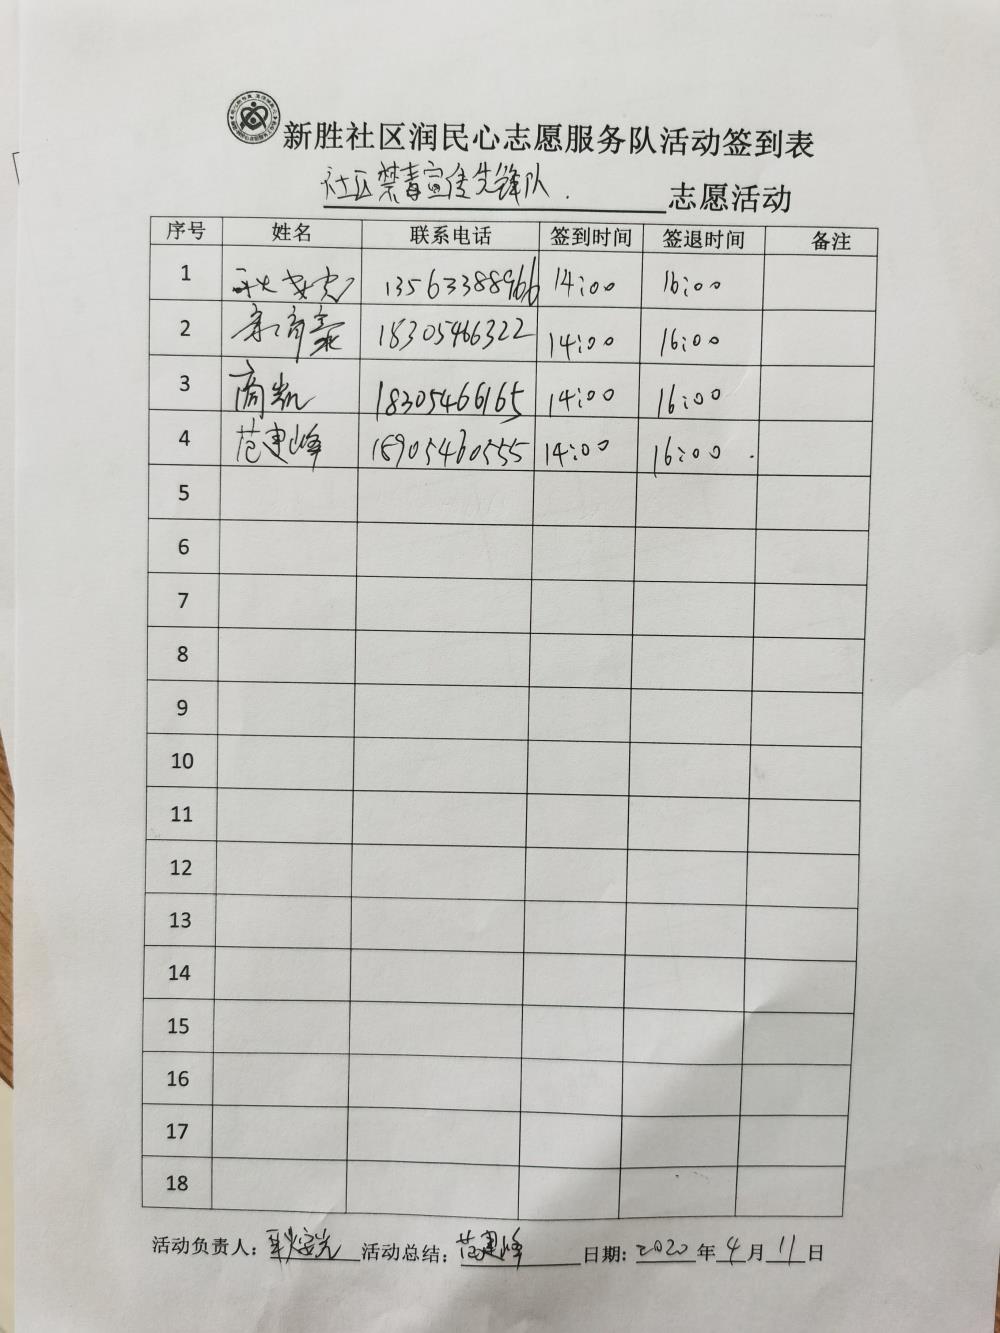 新胜社区润民心志愿服务队活动签到表
社区禁毒宣传先锋队. 志愿活动
序号 姓名 联系电话 签到时间 签退时间 备注
1 耿安光 13563388966 14:00 16:00
2 18305466322 14:00 16:00
3 商凯 18305466165 14:00 16:00
4 范建峰 18905460555 14:00 16:00
5
6
7
8
9
10
11
12
13
14
15
16
17
18
活动负责人: 耿安光 活动总结: 范建峰 日期: 2020年4月11日